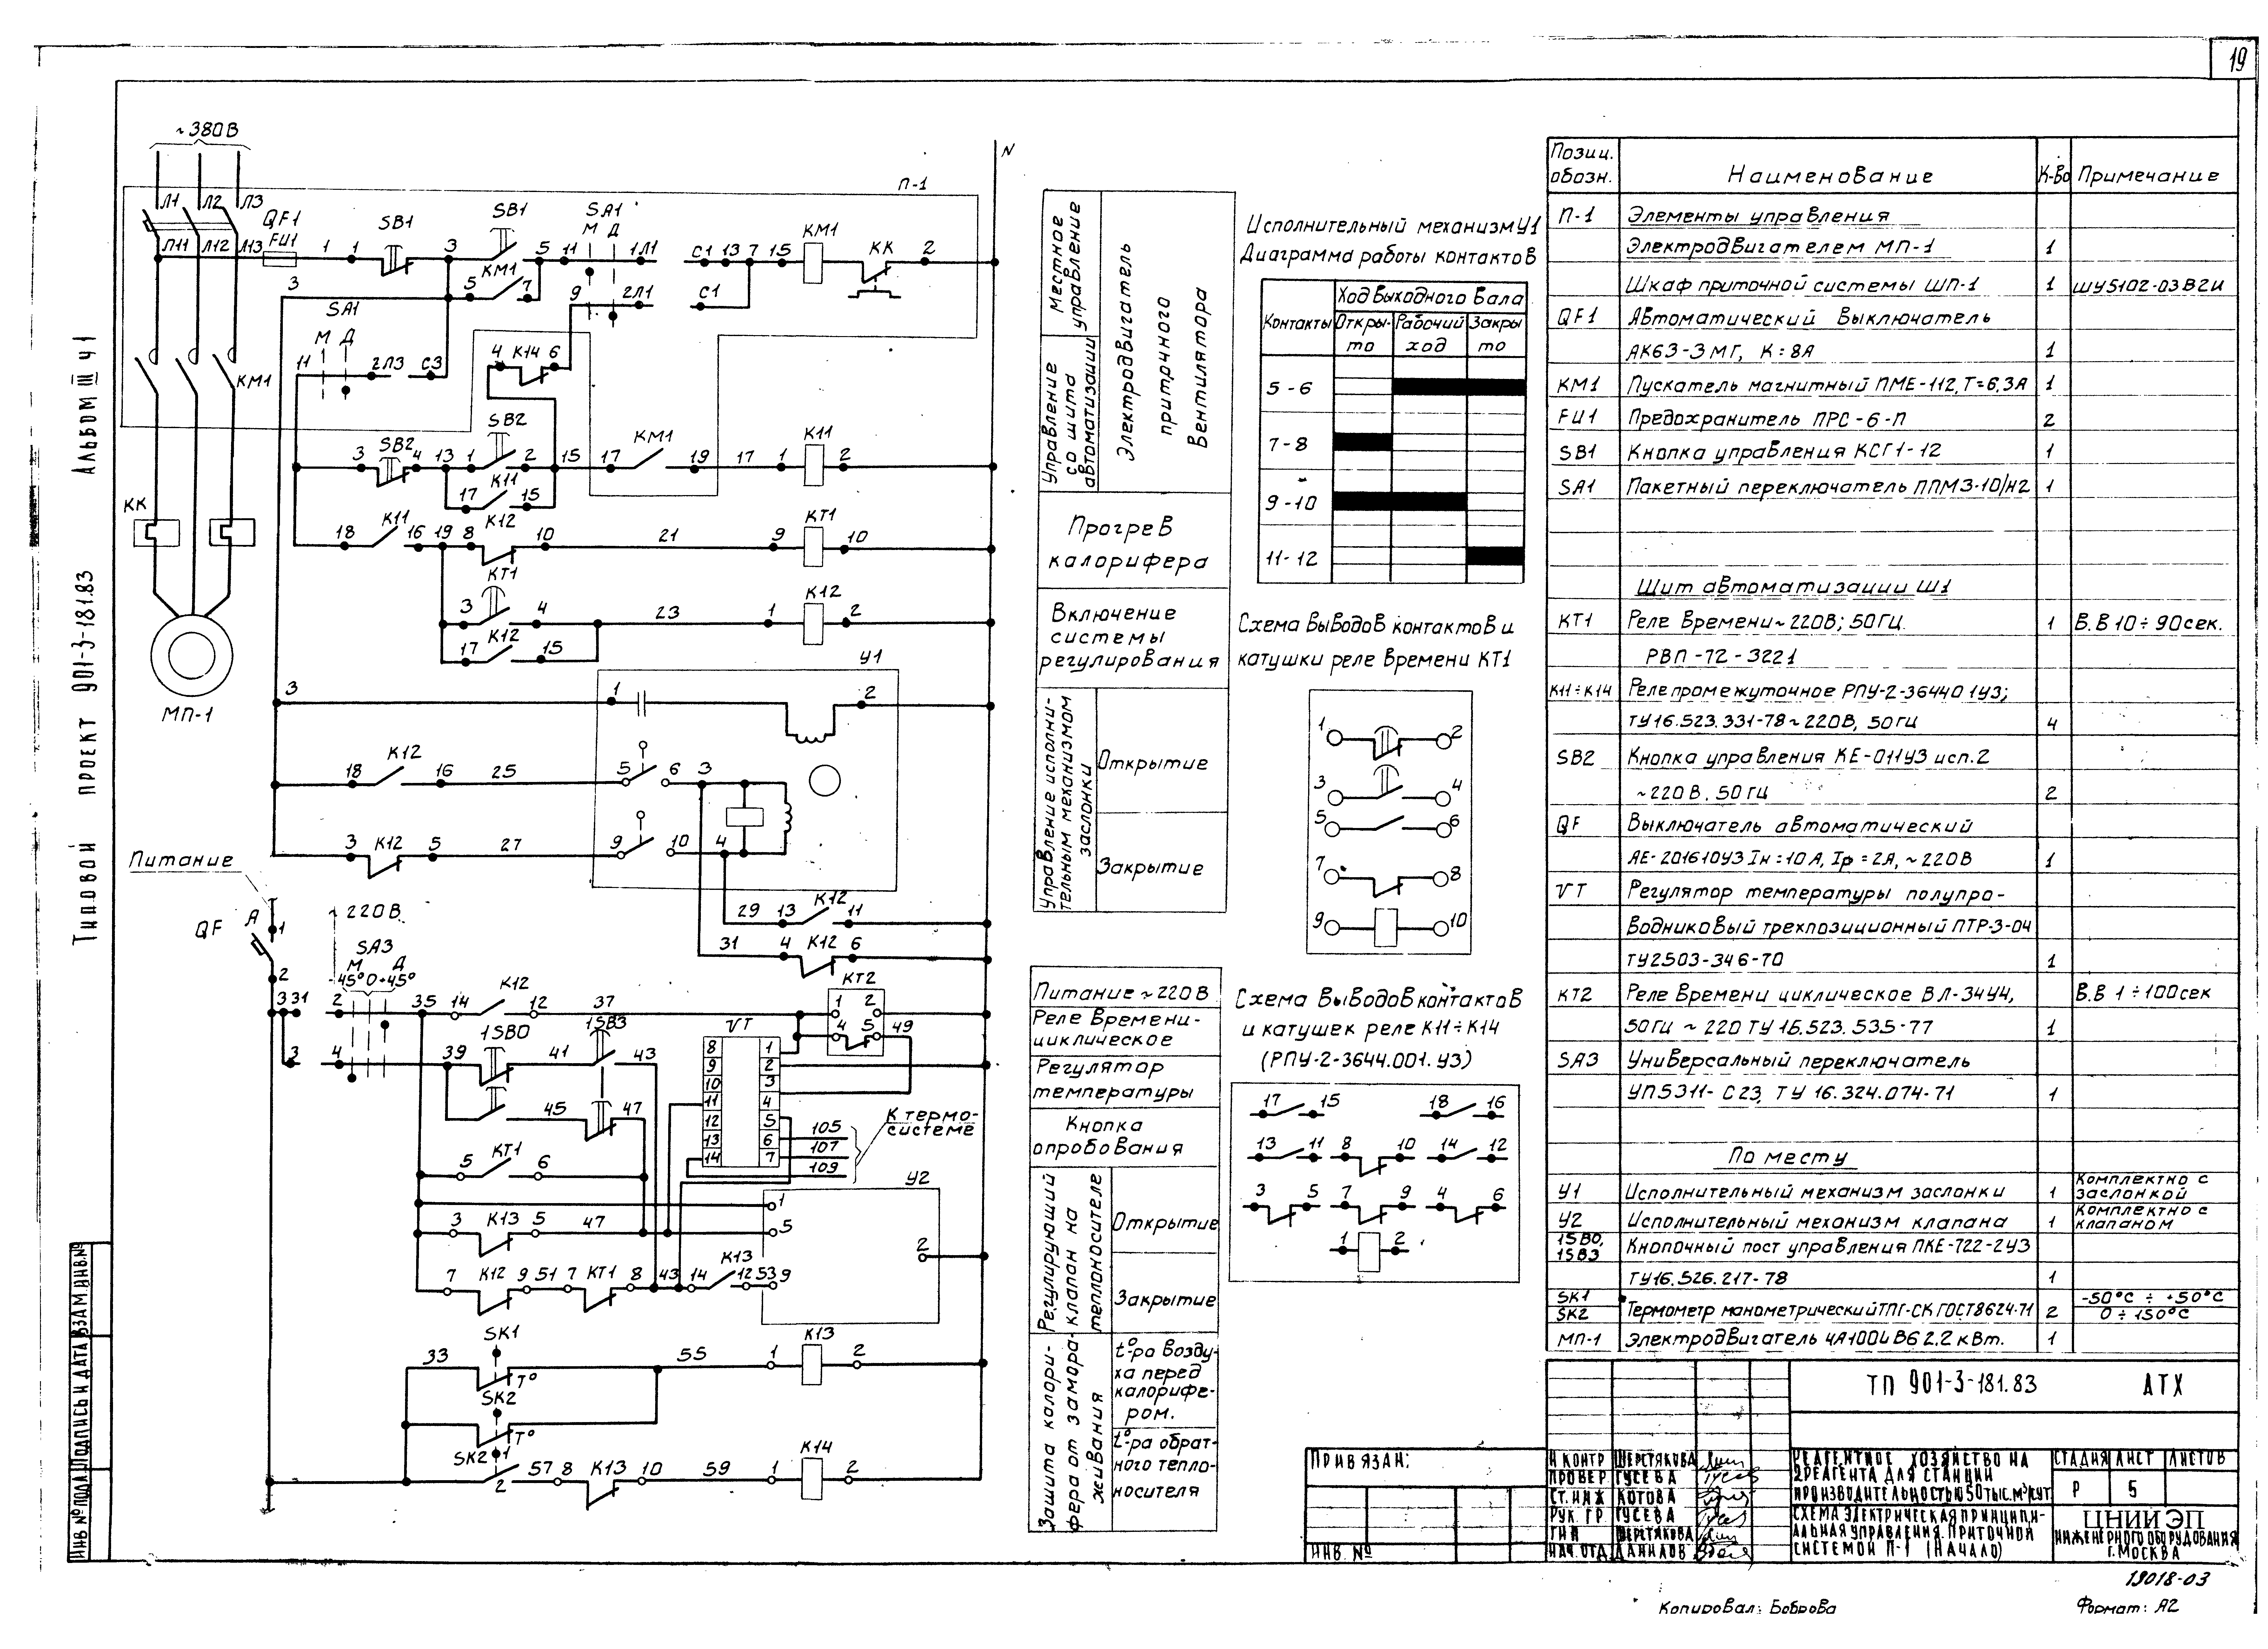 19
Типовой проект 901-3-181.83 Альбом III ч1
~380В
N
П-1
Л1 Л2 Л3
QF1
FU1
Л11 Л12 Л13
1 1 SB1 3 SB1 5 11 SA1 М Д 1Л1 С1 13 7 15 КМ1 КК 2
3 5 КМ1 7 9 2Л1 С1
SA1
М Д
11 2Л3 С3
4 К14 6
КМ1
3 SB2 4 13 1 SB2 2 15 17 КМ1 19 17 1 К11 2
17 К11 15
КК
18 К11 16 19 8 К12 10 21 9 КТ1 10
3 КТ1 4 23 1 К12 2
17 К12 15
МП-1
У1
3 1 2
18 К12 16 25 5 6 3
3 К12 5 27 9 10 4
29 13 К12 11
31 4 К12 6
Питание
QF А 1
2
~220В
SA3
М Д
-45° 0 +45°
3 31 2 35 14 К12 12 37
КТ2
1 2
4 5 49
3 4 39 1SB0 41 1SB3 43
45 47
VT
8 1
9 2
10 3
11 4
12 5
13 6
14 7
105
107
109
К термо-
системе
5 КТ1 6
У2
1
3 К13 5 47 5
2
7 К12 9 51 7 КТ1 8 43 14 К13 12 53 9
33 SK1 T° 55 1 К13 2
SK2 T°
SK2 1 2 57 8 К13 10 59 1 К14 2
Местное управление
Управление со щита автоматизации
Электродвигатель приточного вентилятора
Прогрев
калорифера
Включение
системы
регулирования
Управление исполни-
тельным механизмом
заслонки
Открытие
Закрытие
Питание ~220В
Реле времени-
циклическое
Регулятор
температуры
Кнопка
опробования
Регулирующий
клапан на
теплоносителе
Открытие
Закрытие
Защита калори-
фера от замора-
живания
t°-ра возду-
ха перед
калорифе-
ром.
t°-ра обрат-
ного тепло-
носителя
Исполнительный механизм У1
Диаграмма работы контактов
Контакты
Ход выходного вала
Откры-
то
Рабочий
ход
Закры
то
5-6
7-8
9-10
11-12
Схема выводов контактов и
катушки реле времени КТ1
1 2
3 4
5 6
7 8
9 10
Схема выводов контактов
и катушек реле К11÷К14
(РПУ-2-3644.001.У3)
17 15 18 16
13 11 8 10 14 12
3 5 7 9 4 6
1 2
Позиц.
обозн. Наименование К-во Примечание
П-1 Элементы управления
Электродвигателем МП-1 1
Шкаф приточной системы ШП-1 1 ШУ5102-03В2И
QF1 Автоматический выключатель
АК63-3МГ, К=8А 1
КМ1 Пускатель магнитный ПМЕ-112, Т=6,3А 1
FU1 Предохранитель ПРС-6-П 2
SB1 Кнопка управления КСГ1-12 1
SA1 Пакетный переключатель ППМ3-10/Н2 1
Щит автоматизации Щ1
КТ1 Реле времени ~220В; 50Гц 1 В.В 10÷90сек.
РВП-72-3221
К11÷К14 Реле промежуточное РПУ-2-364401У3;
ТУ16.523.331-78 ~220В, 50Гц 4
SB2 Кнопка управления КЕ-011У3 исп.2
~220В. 50Гц 2
QF Выключатель автоматический
АЕ-201610У3 Iн=10А, Iр=2А, ~220В 1
VT Регулятор температуры полупро-
водниковый трехпозиционный ПТР-3-04
ТУ2503-346-70 1
КТ2 Реле времени циклическое ВЛ-34У4, В.В 1÷100сек
50Гц ~220 ТУ 16.523.535-77 1
SA3 Универсальный переключатель
УП5311-С23, ТУ 16.324.074-71 1
По месту
У1 Исполнительный механизм заслонки 1 Комплектно с заслонкой
У2 Исполнительный механизм клапана 1 Комплектно с клапаном
1SB0,
1SB3 Кнопочный пост управления ПКЕ-722-2У3
ТУ16.526.217-78 1
SK1 -50°С ÷ +50°С
SK2 Термометр манометрический ТПГ-СК ГОСТ8624-71 2 0÷150°С
МП-1 Электродвигатель 4А100LВ6 2.2 кВт. 1
ТП 901-3-181.83 АТХ
Привязан:
Инв. №
Н контр Шерстякова
Провер Гусева
Ст. инж Котова
Рук. гр Гусева
ГИП Шерстякова
Нач. отд Данилов
Реагентное хозяйство на
2 реагента для станции
производительностью 50 тыс. м³/сут
Схема электрическая принципи-
альная управления приточной
системой П-1 (начало)
Стадия Лист Листов
Р 5
ЦНИИЭП
инженерного оборудования
г. Москва
Инв № подл. Подпись и дата Взам. инв. №
19018-03
Копировал: Боброва
Формат: А2